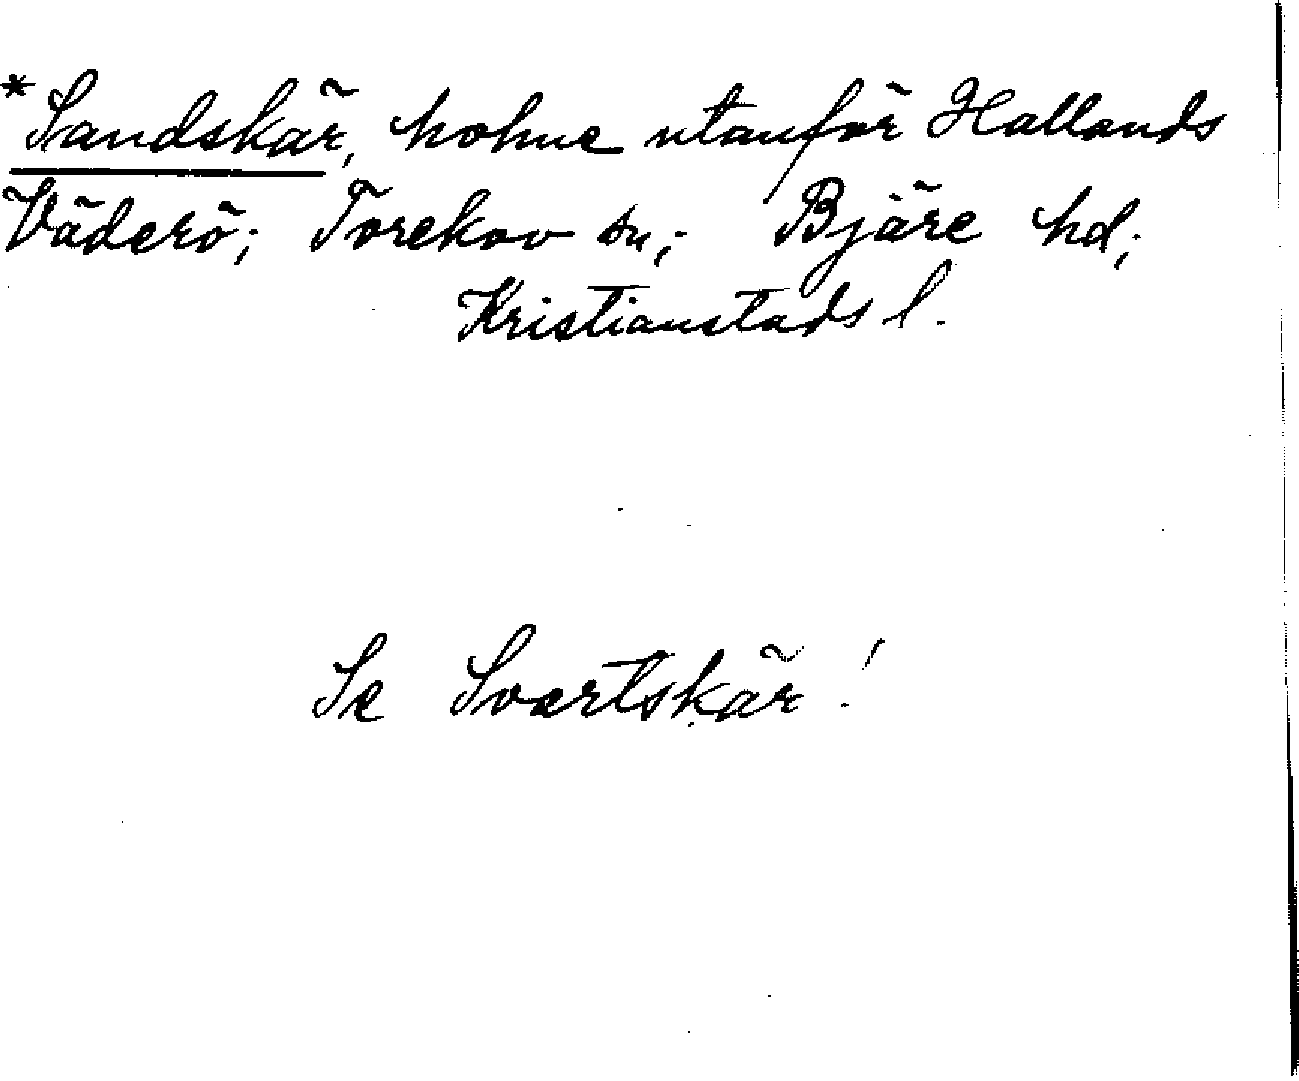 *Sandskär, holme utanför Hallands
Väderö; Torekov sn; Bjäre hd;
Kristianstads l.
Se Svartskär!